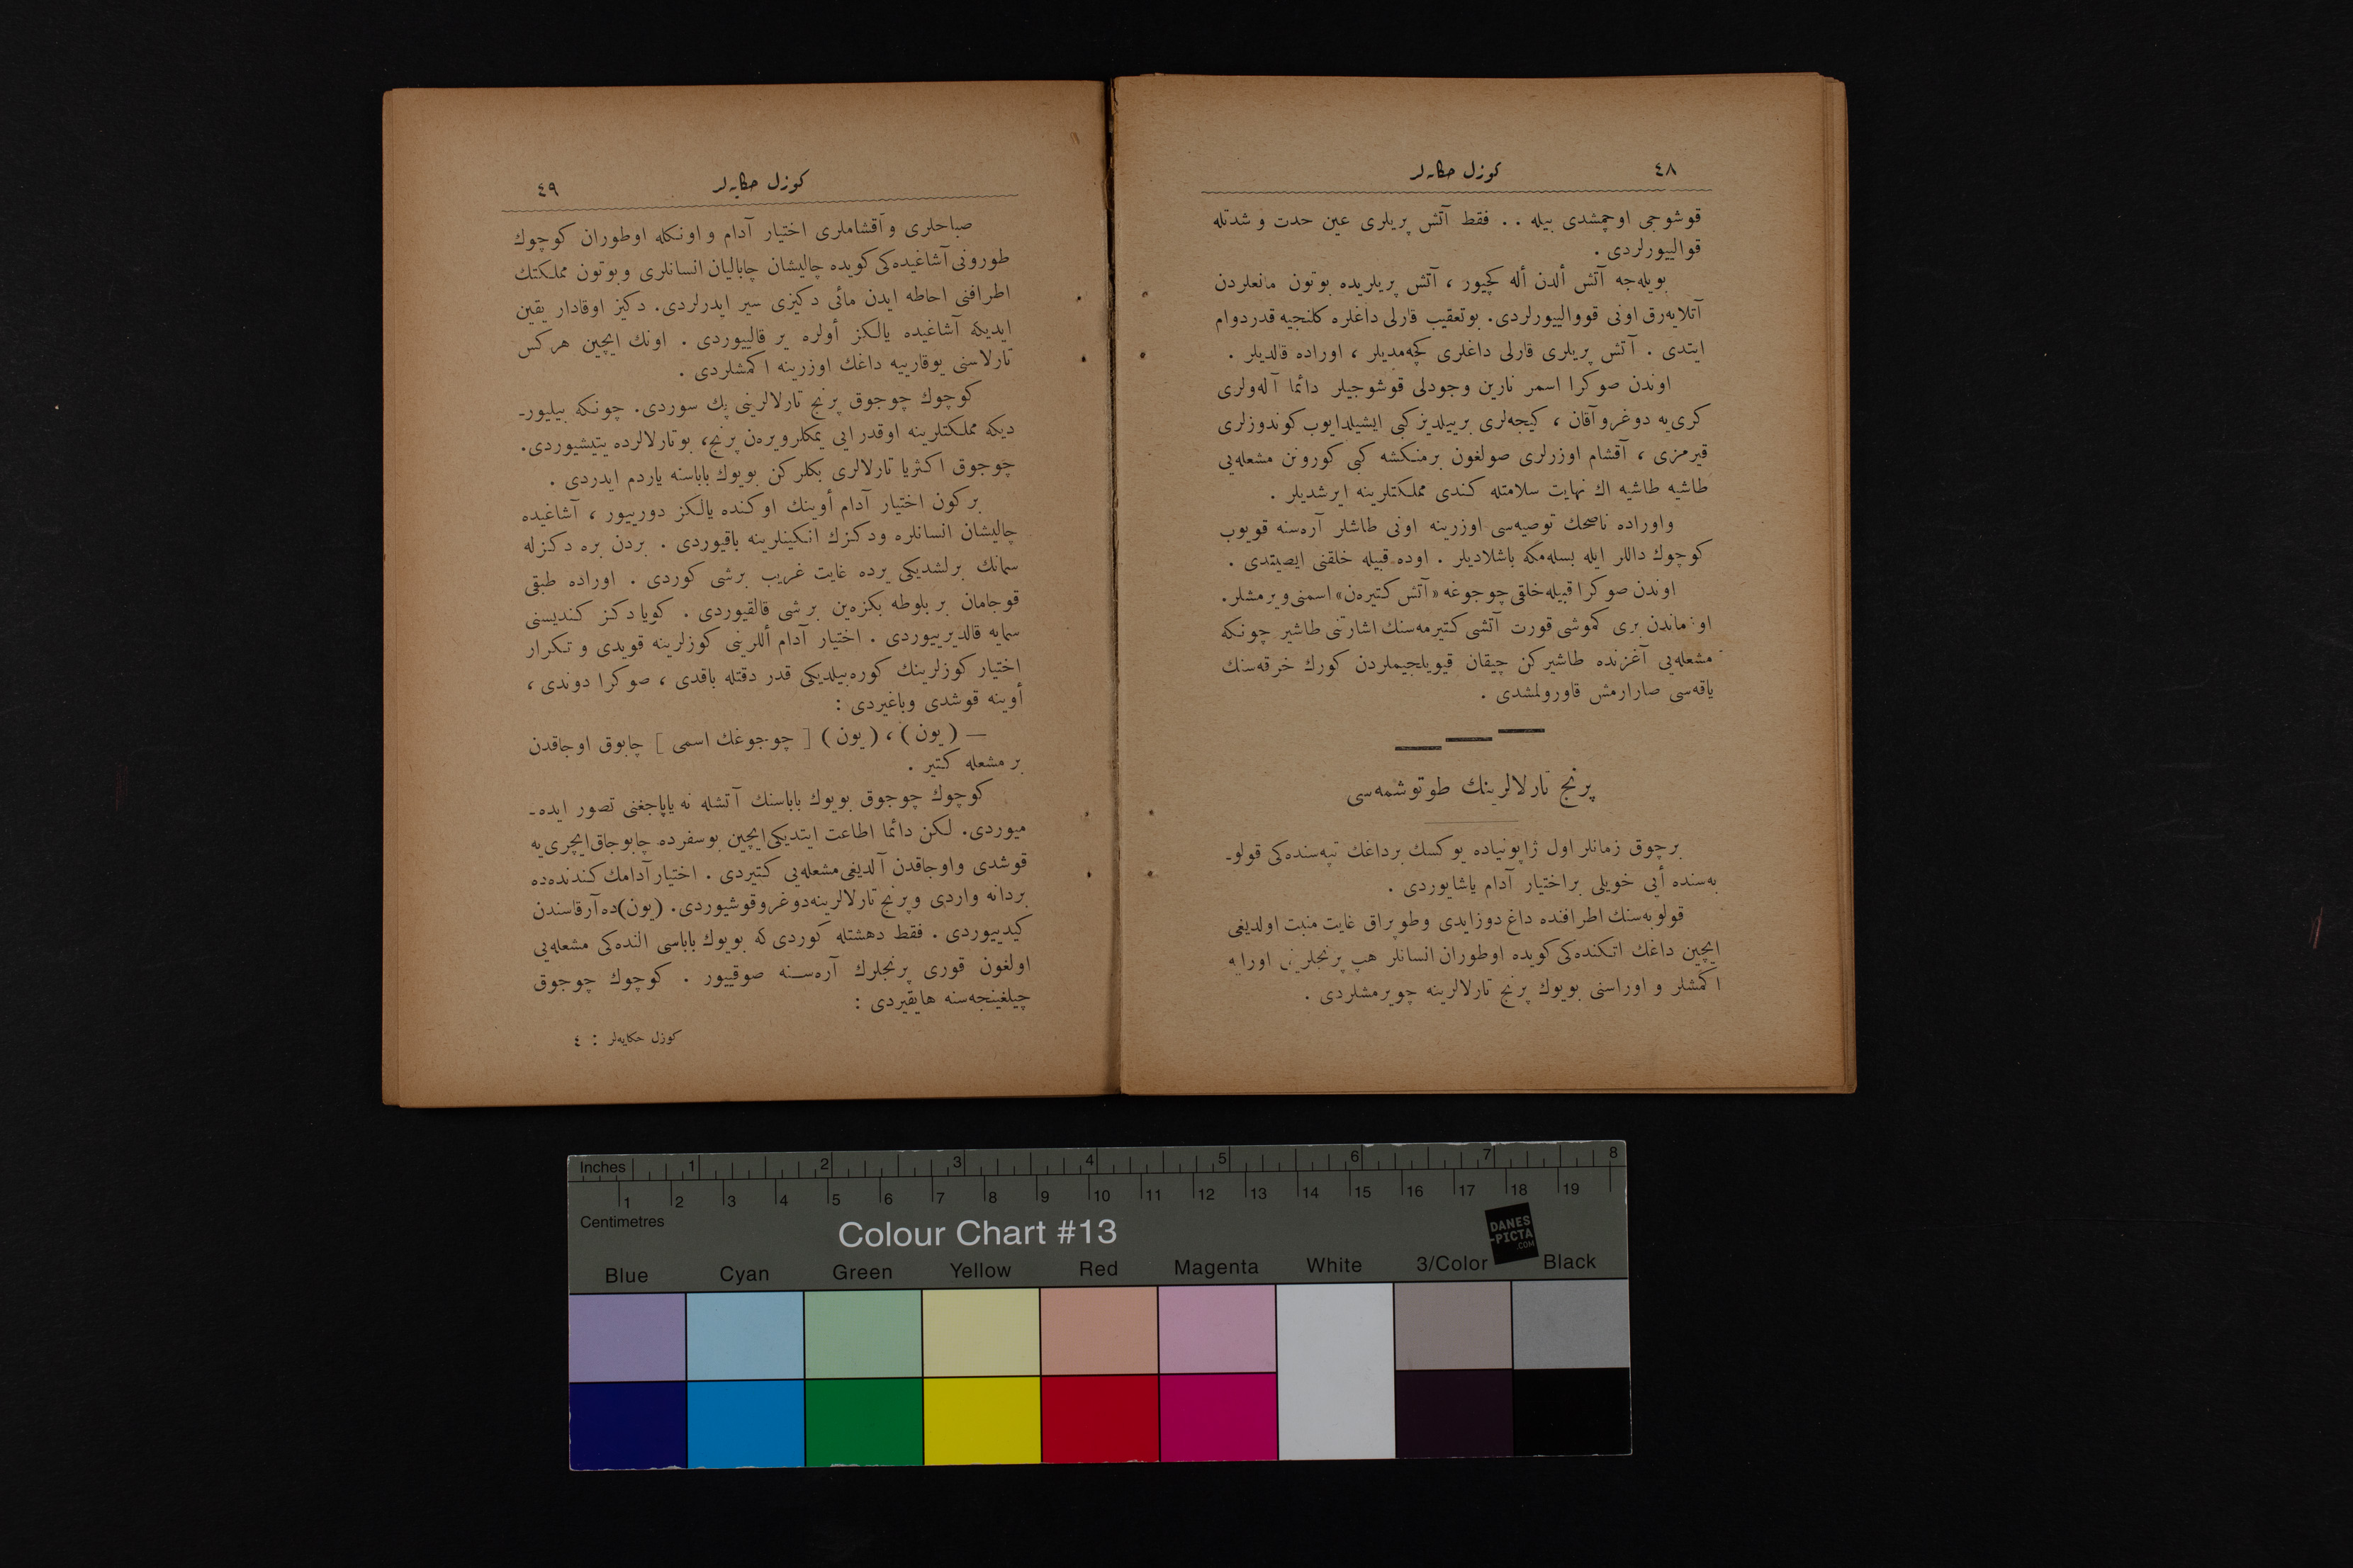 ٤٨
كوزل حكايه‌لر
قوشوجی اوچمشدی بیله . . فقط آتش پریلری عین حدت و شدتله
قوالییورلردی .
بویله‌جه آتش ألدن أله كچیور ، آتش پریلریده بوتون مانعلردن
آتلایه‌رق اونی قووالییورلردی. بوتعقیب قارلی داغلره كلنجیه قدردوام
ایتدی . آتش پریلری قارلی داغلری كچه‌مدیلر ، اوراده قالدیلر .
اوندن صوكرا اسمر نارین وجودلی قوشوجیلر دائما آله‌ولری
كری‌یه دوغرو آقان ، كیجه‌لری برییلدیزكبی ایشیلدایوب كوندوزلری
قیرمزی ، آقشام اوزرلری صولغون برمنكشه كبی كورونن مشعله‌یی
طاشیه طاشیه اك نهایت سلامتله كندی مملكتلرینه ایرشدیلر .
واوراده ناصحك توصیه‌سی اوزرینه اونی طاشلر آره‌سنه قویوب
كوچوك داللر ایله بسله‌مكه باشلادیلر . اوده قبیله خلقنی ایصیتدی .
اوندن صوكرا قبیله‌خلقی‌چوجوغه «آتش كتیره‌ن» اسمنی ویرمشلر.
اوزماندن بری كموشی قورت آتشی كتیرمه‌سنك اشارتنی طاشیر چونكه
مشعله‌یی آغزنده طاشیركن چیقان قیویلجیملردن كورك خرقه‌سنك
یاقه‌سی صارارمش قاورولمشدی .
پرنج تارلالرینك طوتوشمه‌سی
برچوق زمانلر اول ژاپونیاده یوكسك برداغك تپه‌سنده‌كی قولو-
به‌سنده أیی خویلی براختیار آدام یاشایوردی .
قولوبه‌سنك اطرافنده داغ دوزایدی وطوپراق غایت منبت اولدیغی
ایچین داغك اتكنده‌كی كویده اوطوران انسانلر هپ پرنجلرینی اورایه
اكمشلر و اوراسنی بویوك پرنج تارلالرینه چویرمشلردی .
كوزل حكايه‌لر
٤٩
صباحلری و آقشاملری اختیار آدام و اونكله اوطوران كوچوك
طورونی آشاغیده‌كی كویده چالیشان چابالیان انسانلری و بوتون مملكتك
اطرافنی احاطه ایدن مائی دكیزی سیر ایدرلردی. دكیز اوقادار یقین
ایدیكه آشاغیده یالكز أولره یر قالییوردی . اونك ایچین هركس
تارلاسنی یوقارییه داغك اوزرینه اكمشلردی .
كوچوك چوجوق پرنج تارلالرینی پك سوردی. چونكه بیلیور-
دیكه مملكتلرینه اوقدر ایی یمكلر ویره‌ن پرنج، بوتارلالرده یتیشیوردی.
چوجوق اكثریا تارلالری بكلركن بویوك باباسنه یاردم ایدردی .
بركون اختیار آدام أوینك اوكنده یالكز دورییور ، آشاغیده
چالیشان انسانلره ودكزك انكینلرینه باقیوردی . بردن بره دكزله
سمانك برلشدیكی یرده غایت غریب برشی كوردی . اوراده طبقی
قوجامان بر بلوطه بكزه‌ین برشی قالقیوردی . كویا دكز كندیسنی
سمایه قالدیرییوردی . اختیار آدام أللرینی كوزلرینه قویدی و تكرار
اختیار كوزلرینك كوره‌بیلدیكی قدر دقتله باقدی ، صوكرا دوندی ،
أوینه قوشدی وباغیردی :
— (یون) ، (یون) [ چوجوغك اسمی ] چابوق اوجاقدن
بر مشعله كتیر .
كوچوك چوجوق بویوك باباسنك آتشله نه یاپاجغنی تصور ایده-
میوردی. لكن دائما اطاعت ایتدیكی‌ایچین بوسفرده چابوجاق‌ایچری‌یه
قوشدی و اوجاقدن آلدیغی مشعله‌یی كتیردی . اختیار آدامك كندنده‌ده
بردانه واردی و پرنج تارلالرینه‌دوغروقوشیوردی. (یون)ده‌آرقاسندن
كیدییوردی . فقط دهشتله كوردی كه بویوك باباسی النده‌كی مشعله‌یی
اولغون قوری پرنجلرك آره‌سنه صوقییور . كوچوك چوجوق
چیلغینجه‌سنه هایقیردی :
كوزل حكایه‌لر : ٤
Inches 1 2 3 4 5 6 7 8
1 2 3 4 5 6 7 8 9 10 11 12 13 14 15 16 17 18 19
Centimetres
Colour Chart #13
DANES
-PICTA
.COM
Blue Cyan Green Yellow Red Magenta White 3/Color Black